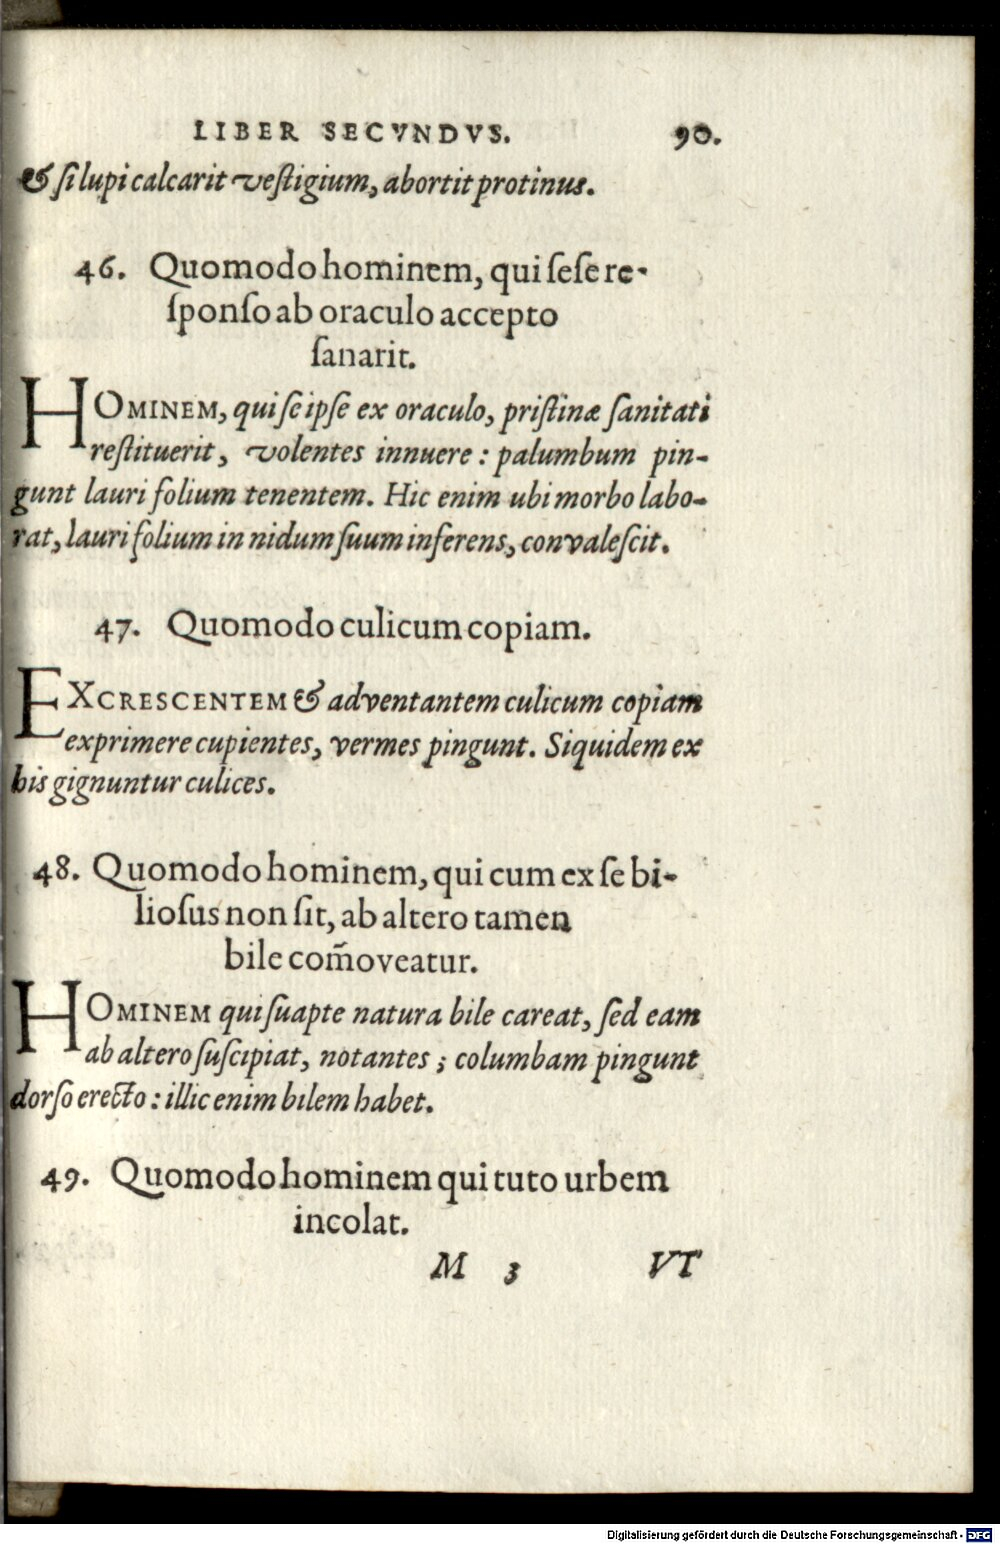 LIBER SECVNDVS. 90.
& ſi lupi calcarit veſtigium, abortit protinus.
46. Quomodo hominem, qui ſeſe re-
ſponſo ab oraculo accepto
ſanarit.
HOMINEM, qui ſe ipſe ex oraculo, priſtinæ ſanitati
reſtituerit, volentes innuere: palumbum pin-
gunt lauri folium tenentem. Hic enim ubi morbo labo-
rat, lauri folium in nidum ſuum inferens, convaleſcit.
47. Quomodo culicum copiam.
EXCRESCENTEM & adventantem culicum copiam
exprimere cupientes, vermes pingunt. Siquidem ex
his gignuntur culices.
48. Quomodo hominem, qui cum ex ſe bi-
lioſus non ſit, ab altero tamen
bile com̃oveatur.
HOMINEM qui ſuapte natura bile careat, ſed eam
ab altero ſuſcipiat, notantes; columbam pingunt
dorſo erecto: illic enim bilem habet.
49. Quomodo hominem qui tuto urbem
incolat.
M 3 VT
Digitalisierung gefördert durch die Deutsche Forschungsgemeinschaft - DFG